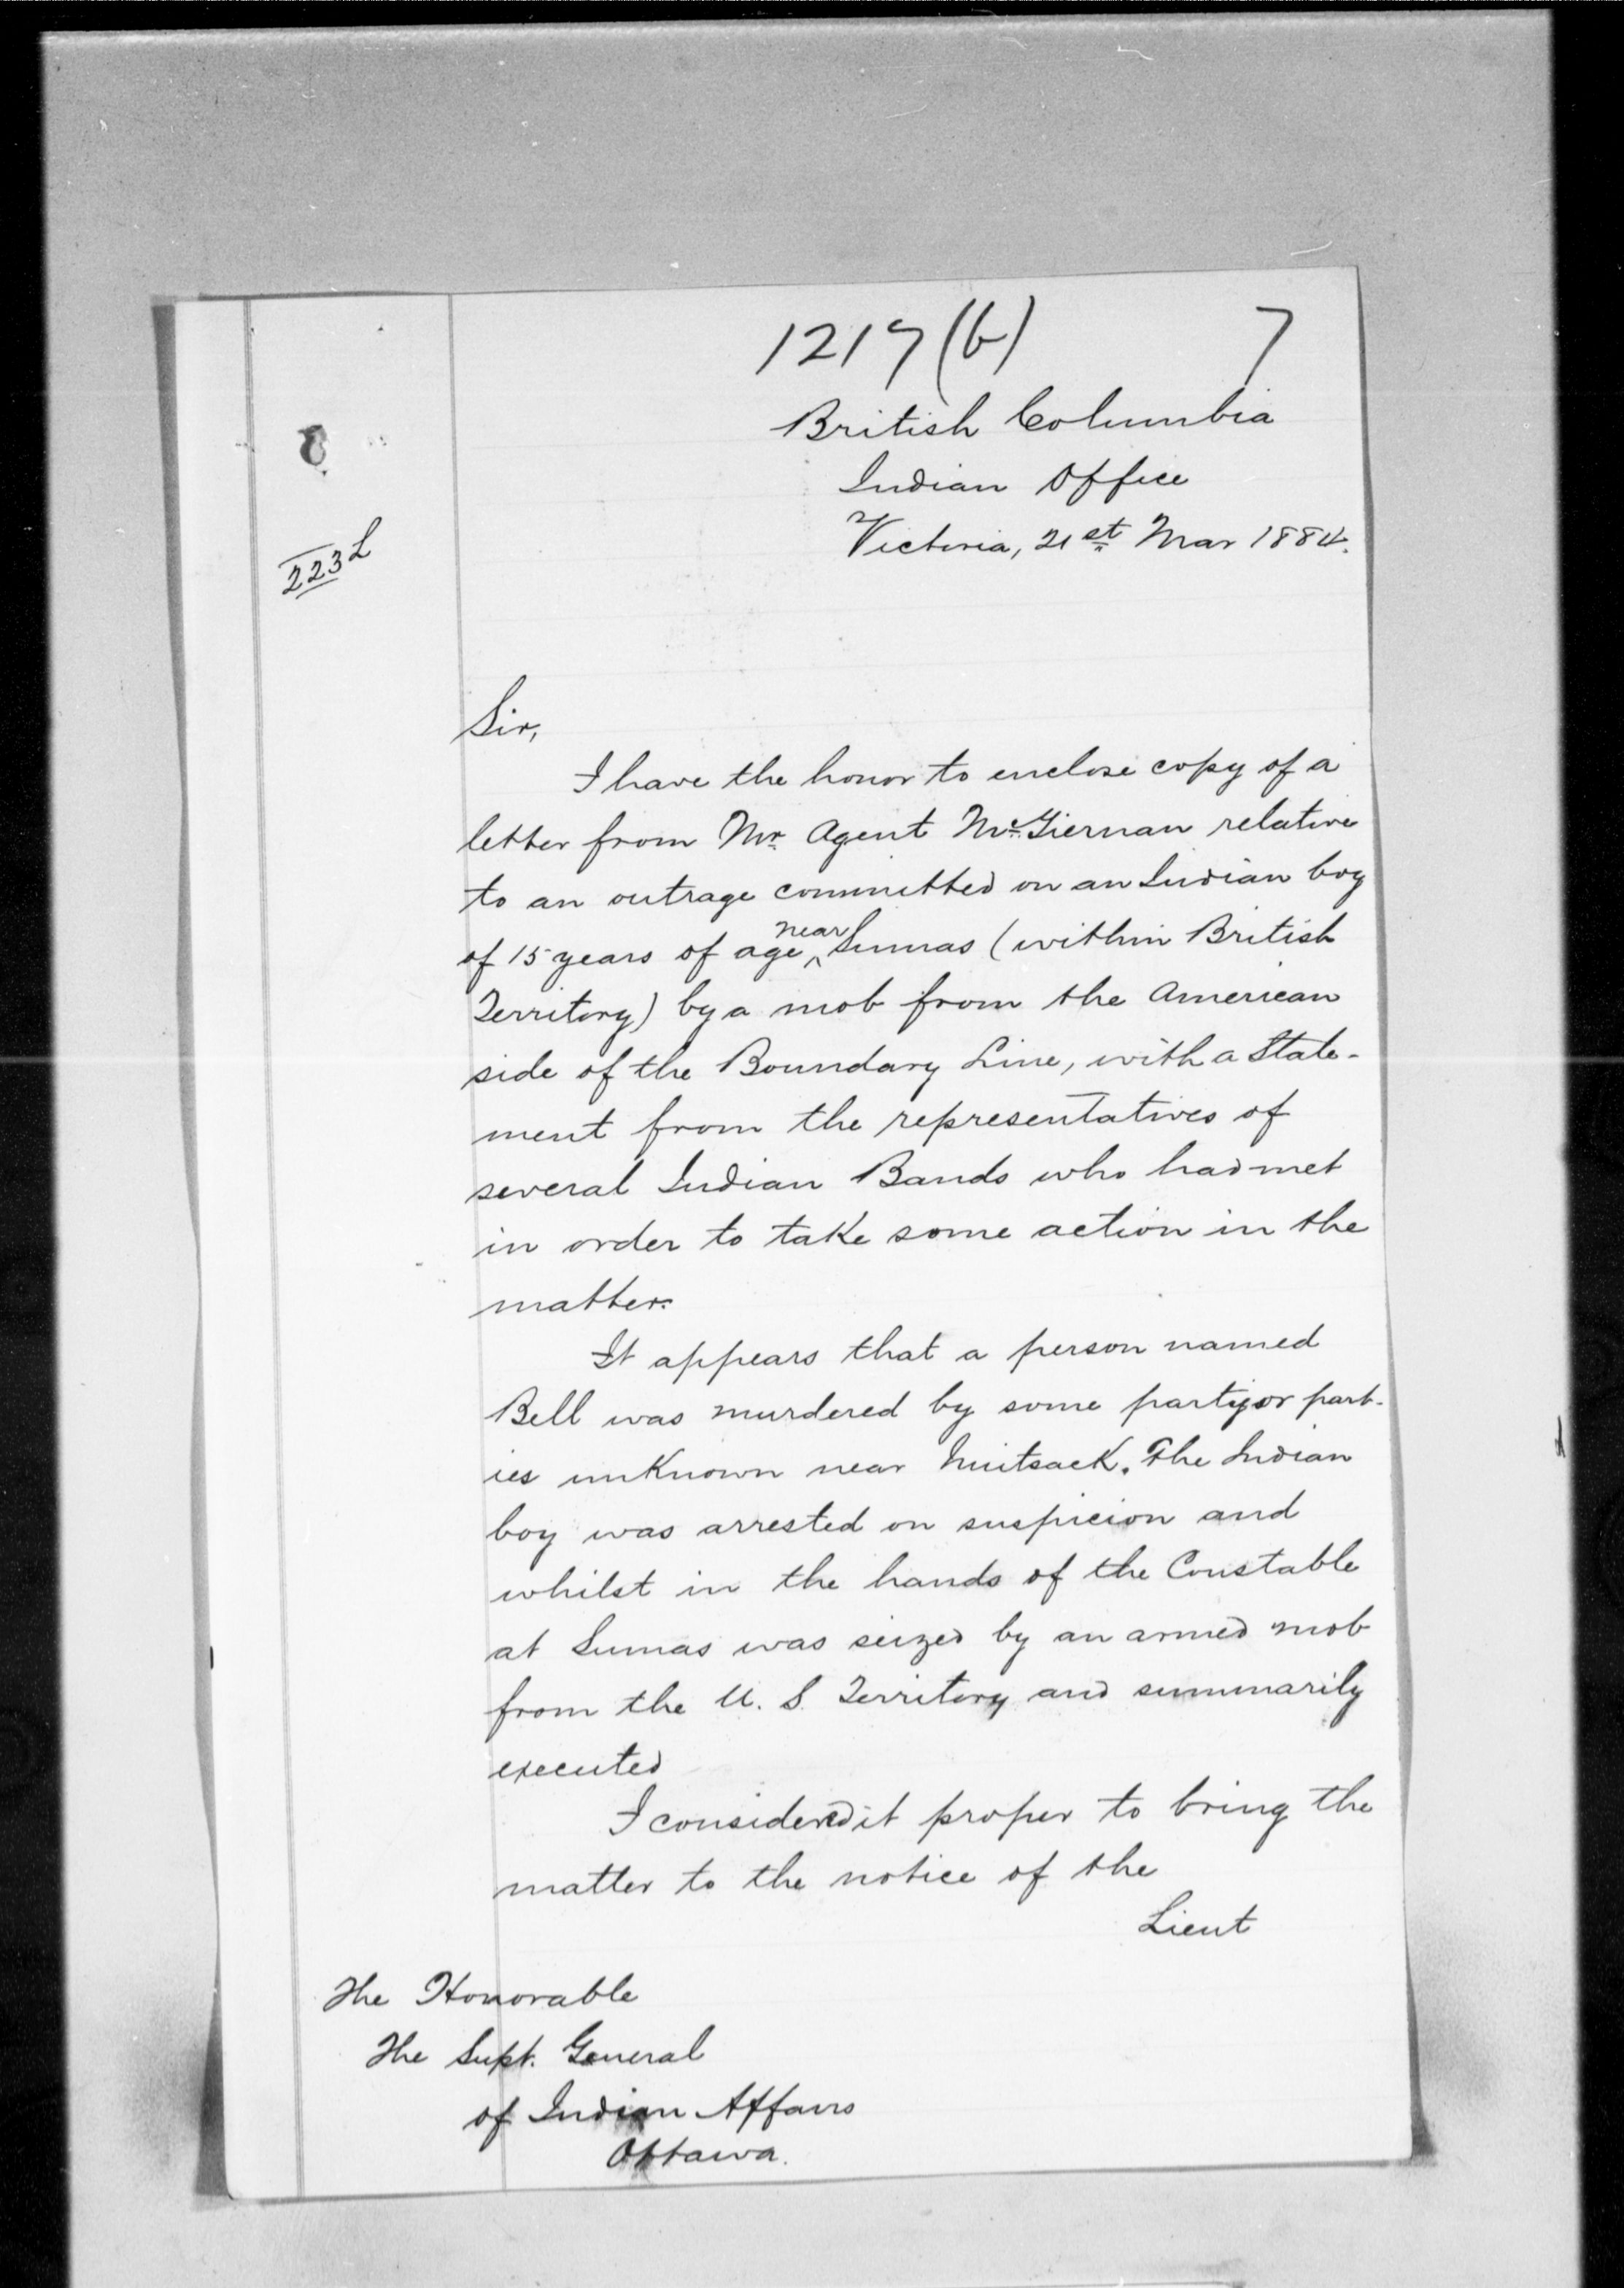 1217(b) 7
British Columbia
Indian Office
Victoria, 21st Mar 1884.
223 L
Sir,
I have the honor to enclose copy of a
letter from Mr. Agent McTiernan relative
to an outrage committed on an Indian boy
of 15 years of age near Sumas (within British
Territory) by a mob from the American
side of the Boundary Line, with a State-
ment from the representatives of
several Indian Bands who had met
in order to take some action in the
matter.
It appears that a person named
Bell was murdered by some party or part-
ies unknown near . The Indian
boy was arrested on suspicion and
whilst in the hands of the Constable
at Sumas was seized by an armed mob
from the U. S. Territory and summarily
executed
I considered it proper to bring the
matter to the notice of the
Lieut
The Honorable
The Supt. General
of Indian Affairs
Ottawa.